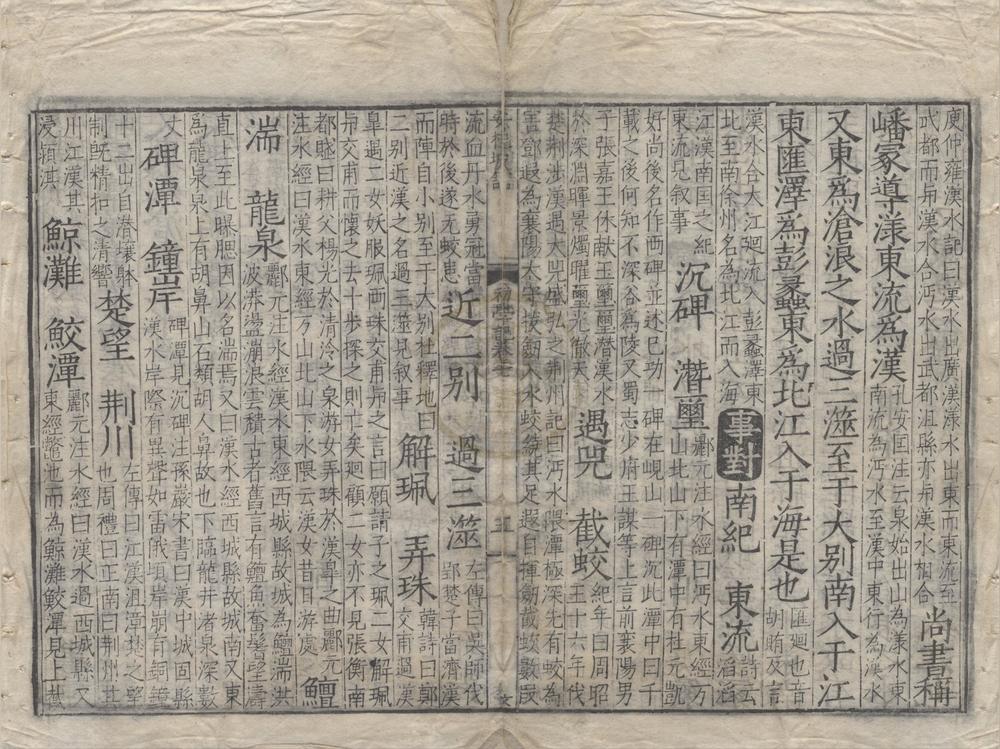 庾仲雍漢水記曰漢水出廣漢漾水出東而東流至
武都而與漢水合沔水出武都沮縣亦與漢水相合 尚書稱
嶓冢導漾東流爲漢 孔安國注云泉始出山為漾水東南流為沔水至漢中東行為漢水
又東爲滄浪之水過三澨至于大别南入于江
東匯澤爲彭蠡東爲北江入于海是也 匯迴也音胡賄反言
漢水合大江廻流入彭蠡澤東北至南徐州名為北江而入海 事對 南紀 東流 詩云滔滔
江漢南國之紀東流見叙事 沉碑 潛璽 酈元注水經曰沔水東經方山北山下有潭中有杜元凱
好尚後名作兩碑並述巳功一碑在峴山一碑沉此潭中曰千
載之後何知不深谷為陵又蜀志少府王謀等上言前襄陽男
子張嘉王休献玉璽璽潜漢水
於深淵暉景燭燿璽光徹天 遇兕 截蛟 紀年曰周昭王十六年伐
楚荆涉漢遇大兕盛弘之荆州記曰沔水隈潭極深先有蛟為
害鄧遐為襄陽太守拔劒入水蛟繞其足遐自揮劒截蛟數段
流血丹水勇冠當時於後遂无蛟患 近二别 過三澨 左傳曰吳師伐郢楚子當濟漢
而陣自小别至于大别杜釋地曰
二别近漢之名過三澨見叙事 解珮 弄珠 韓詩曰鄭交甫過漢
皐遇二女妖服珮兩珠交甫與之言曰願請子之珮二女解珮
與交甫而懷之去十歩探之則亡矣廻顧二女亦不見張衡南
都賦曰耕父楊光於清泠之泉游女弄珠於漢皐之曲酈元
注水經曰漢水東經方山北山下水隈云漢女昔日游處 鱣
湍 龍泉 酈元注水經漢水東經西城縣故城為鱣湍洪波漭盪漰浪雲積古耆舊言有鱣魚奮鬐望濤
直上至此曝腮因以名湍焉又曰漢水經西城縣故城南又東
為龍泉泉上有胡鼻山石類胡人鼻故也下臨龍井渚泉深數
丈 碑潭 鐘岸 碑潭見沉碑注孫嚴宋書曰漢中城固縣漢水岸際有異聲如雷俄頃岸崩有銅鐘
十二出自潜壤躰制既精扣之清響 楚望 荆川 左傳曰江漢沮漳楚之望也周禮曰正南曰荆州其
川江漢其浸頴淇 鯨灘 鮫潭 酈元注水經曰漢水過西城縣又東經鼈池而為鯨灘鮫潭見上